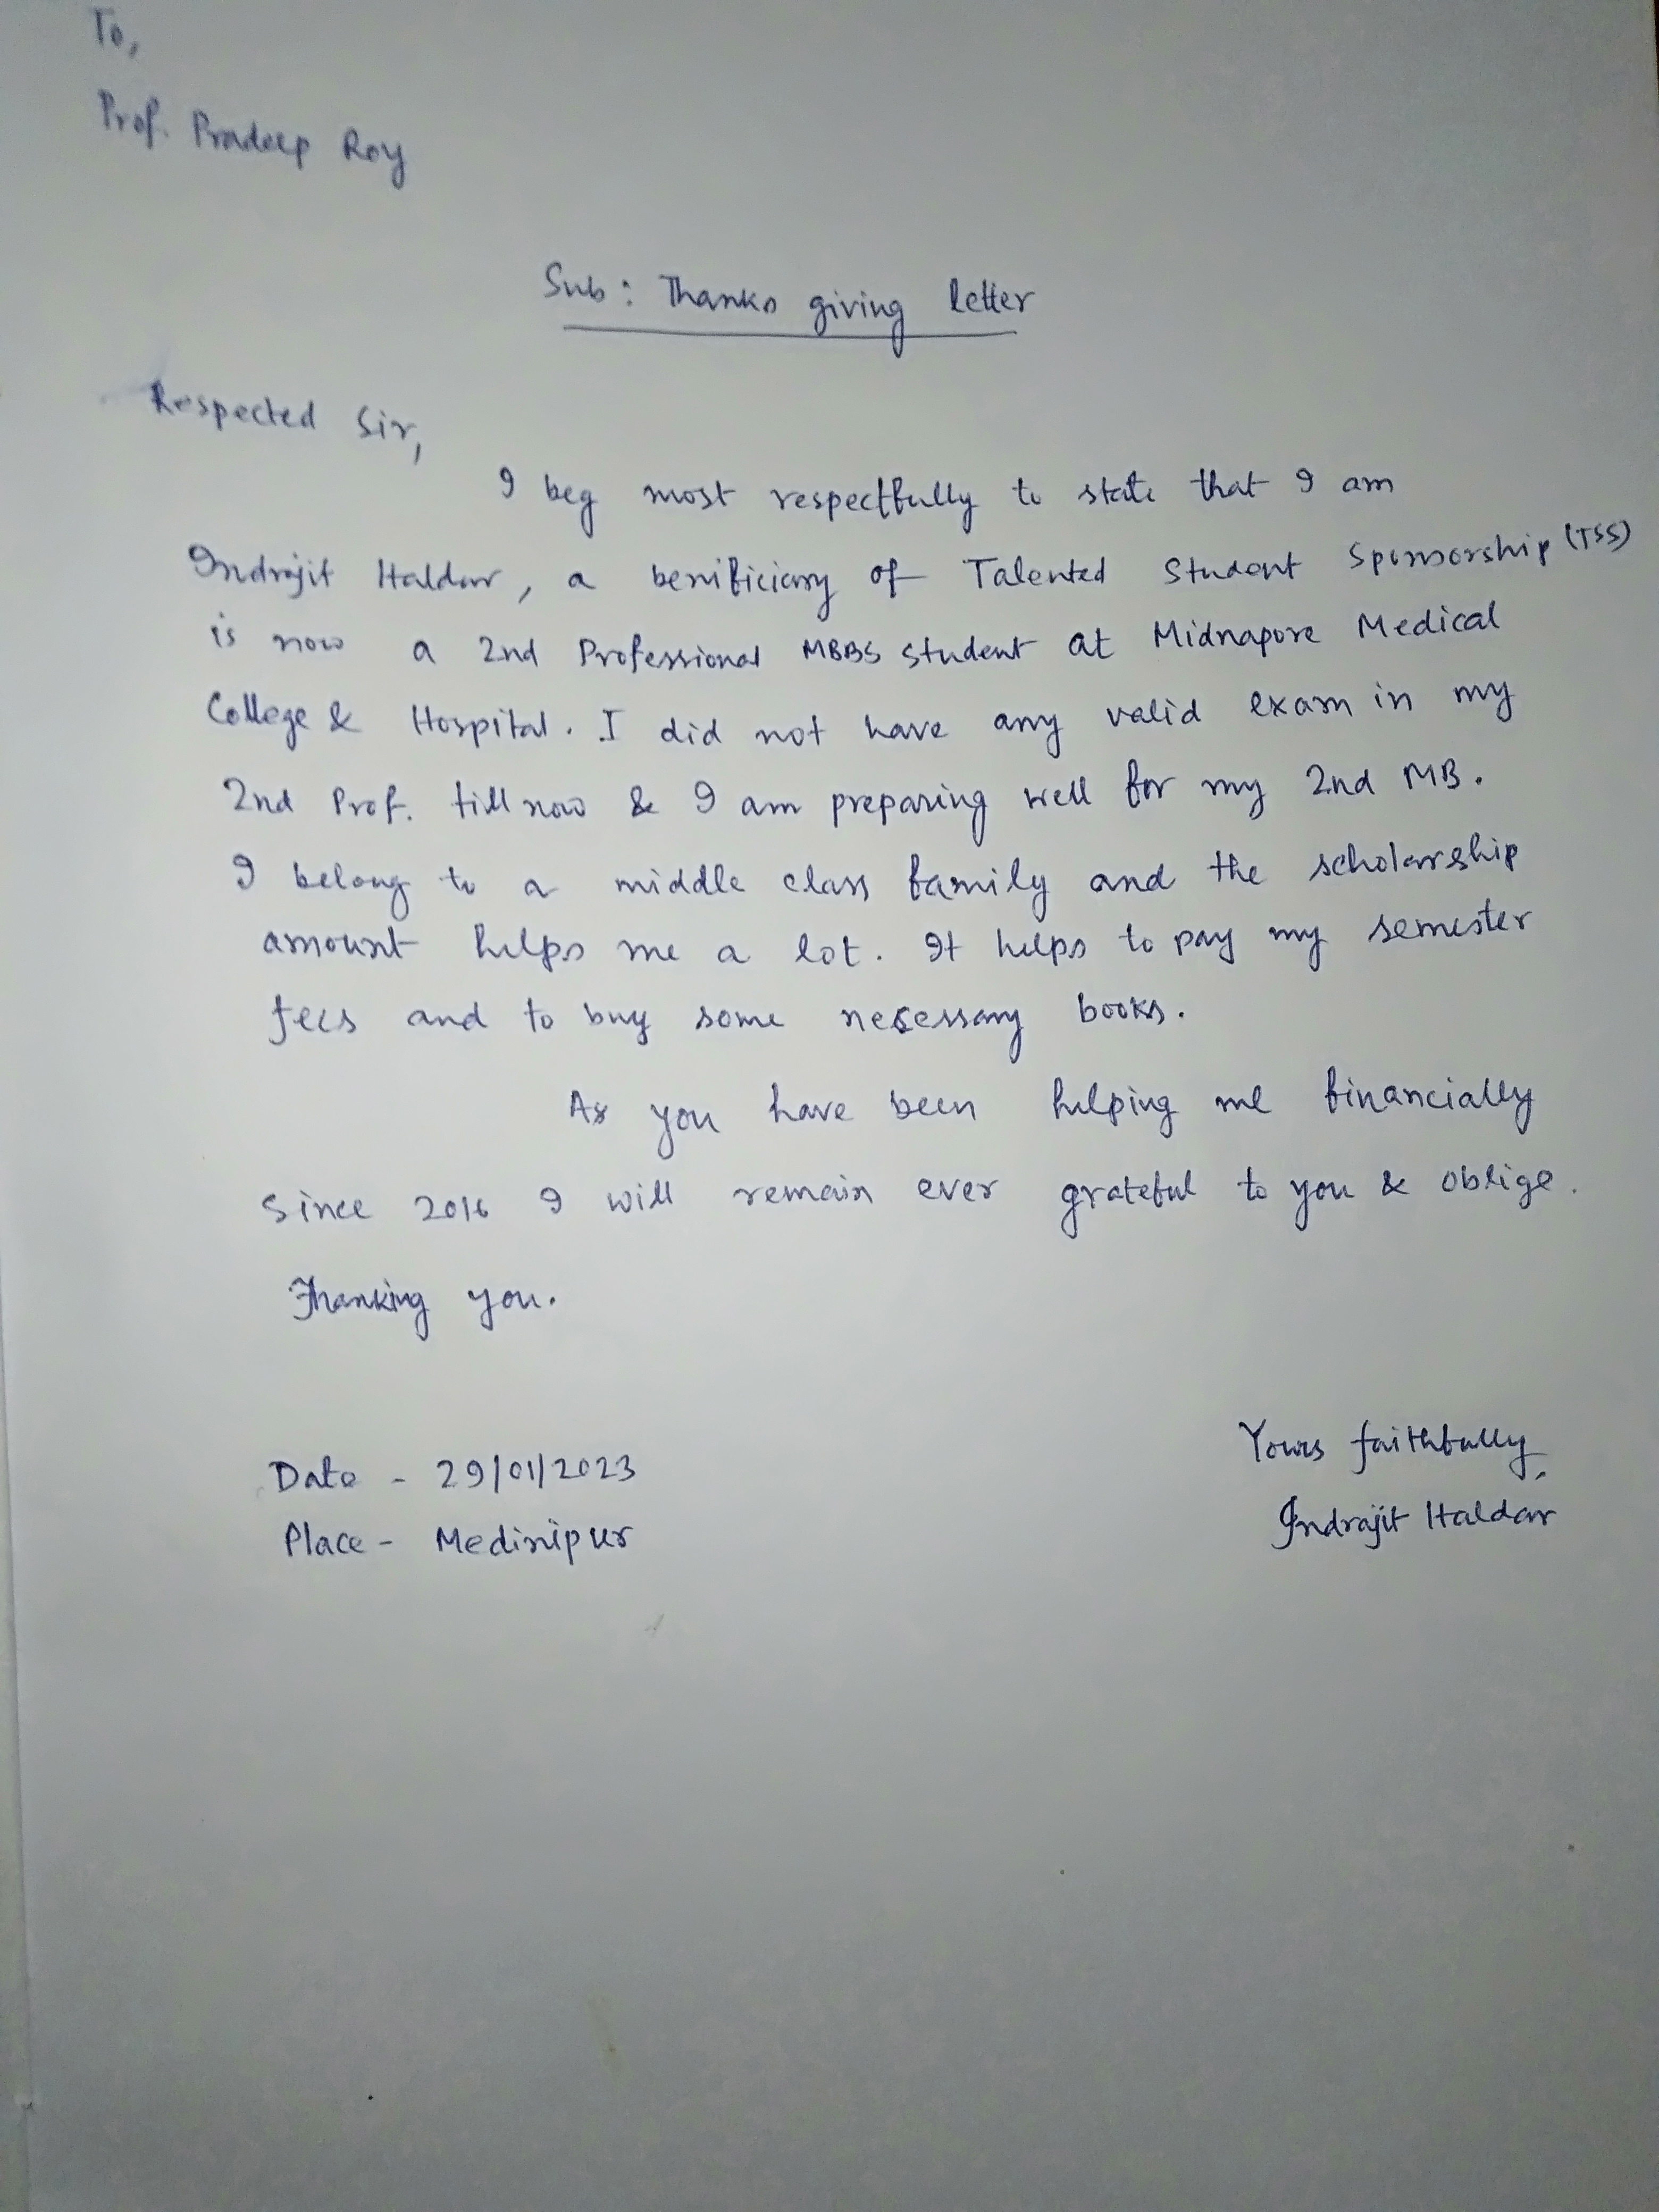 To,
Prof. Pradeep Roy
Sub: Thanks giving letter
Respected Sir,
I beg most respectfully to state that I am
Indrajit Haldar, a benificiary of Talented Student Sponsorship (TSS)
is now a 2nd Professional MBBS student at Midnapore Medical
College & Hospital. I did not have any valid exam in my
2nd Prof. till now & I am preparing well for my 2nd MB.
I belong to a middle class family and the scholarship
amount helps me a lot. It helps to pay my semester
fees and to buy some necessary books.
As you have been helping me financially
since 2016 I will remain ever grateful to you & oblige.
Thanking you.
Yours faithfully,
Date - 29/01/2023
Indrajit Haldar
Place - Medinipur